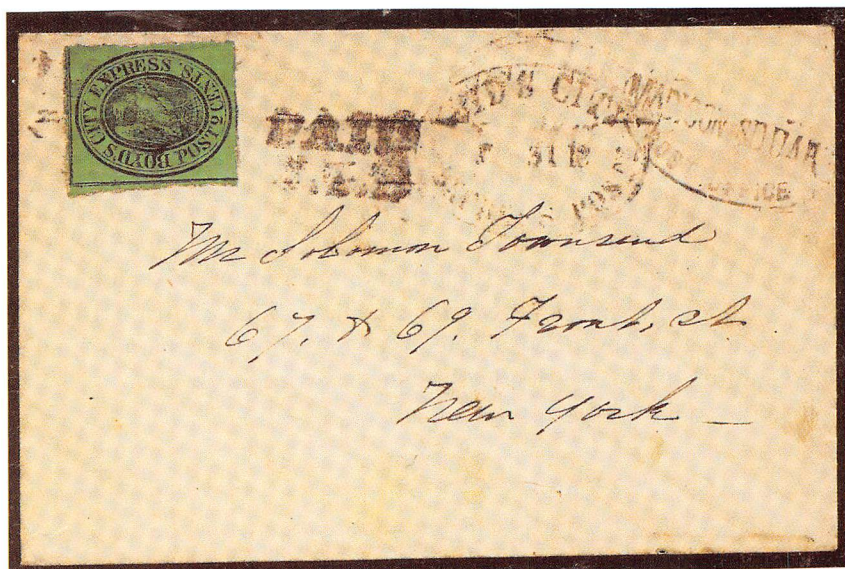 BOYD'S CITY EXPRESS POST. 2 CENTS.
PAID
J.T.B.
BOYD'S CITY
EXPRESS POST
MADISON SQUARE
POST OFFICE
Mr Solomon Townsend
67. & 69. Front. St
New York –